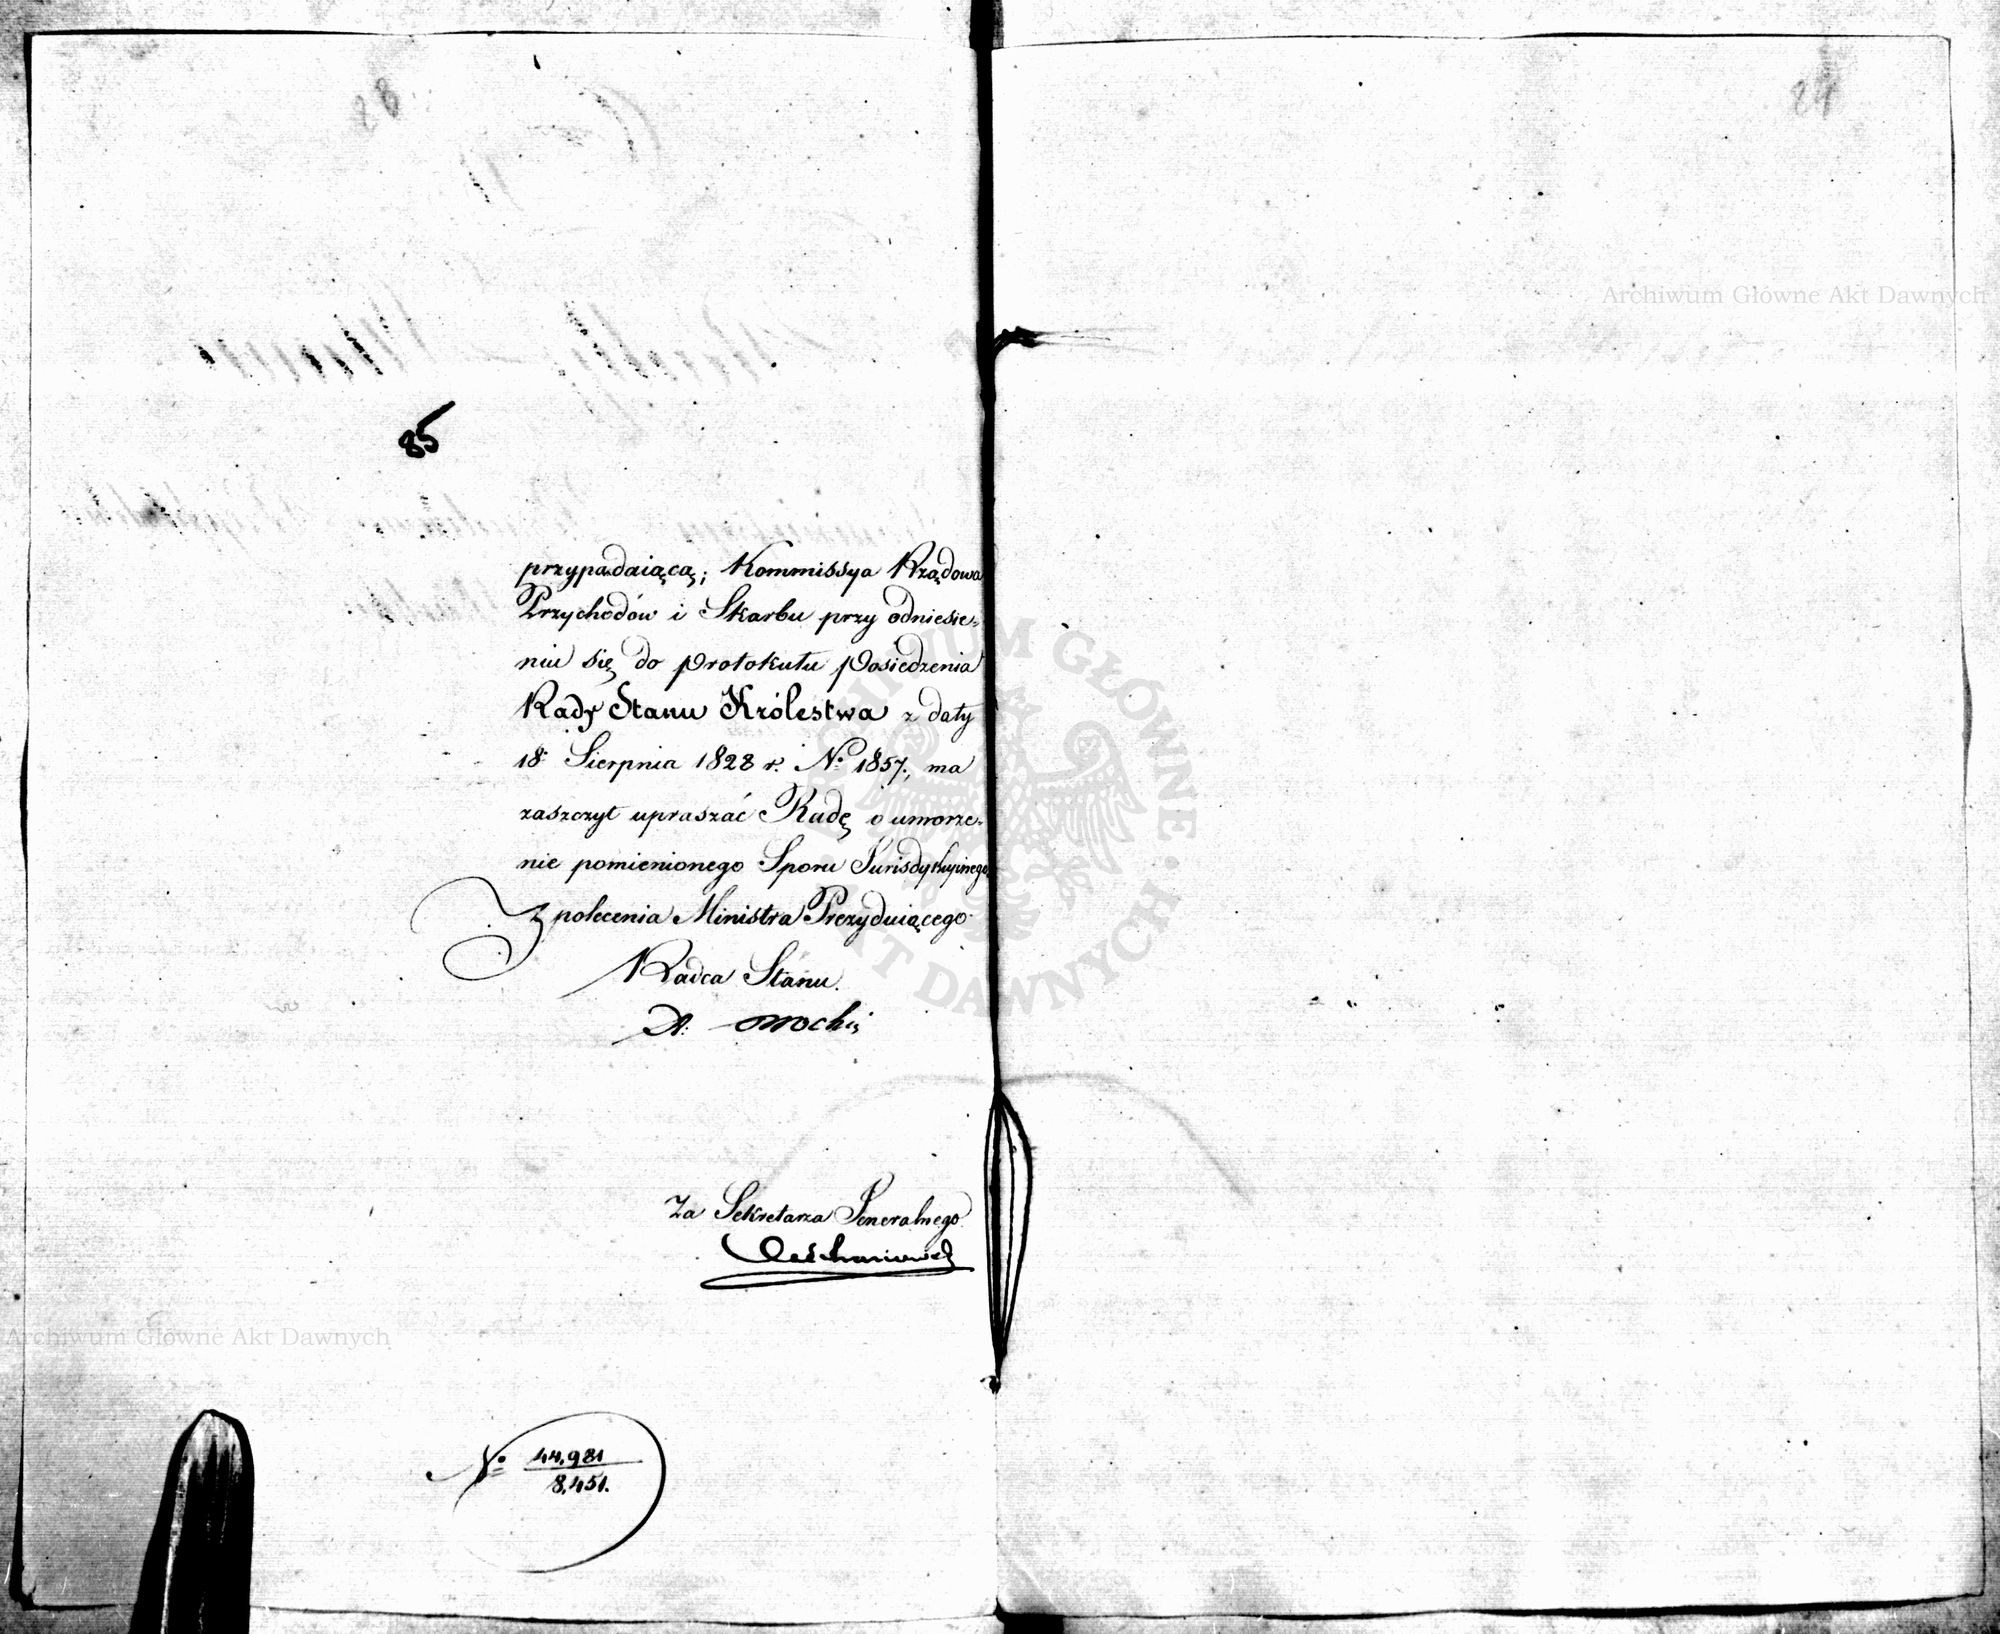 85
przypadaiącą; Kommissya Rządowa
Przychodów i Skarbu przy odniesie-
niu się do protokułu posiedzenia
Rady Stanu Królestwa z daty
18 Sierpnia 1828 r. No 1857, ma
zaszczyt upraszać Radę o umorze-
nie pomienionego Sporu Jurisdykcyinego.
Z polecenia Ministra Prezyduiącego
Radca Stanu.
Za Sekretarza Jeneralnego
No 44,981
8,451.
24
Archiwum Główne Akt Dawnych
ARCHIWUM GŁÓWNE AKT DAWNYCH
Archiwum Główne Akt Dawnych